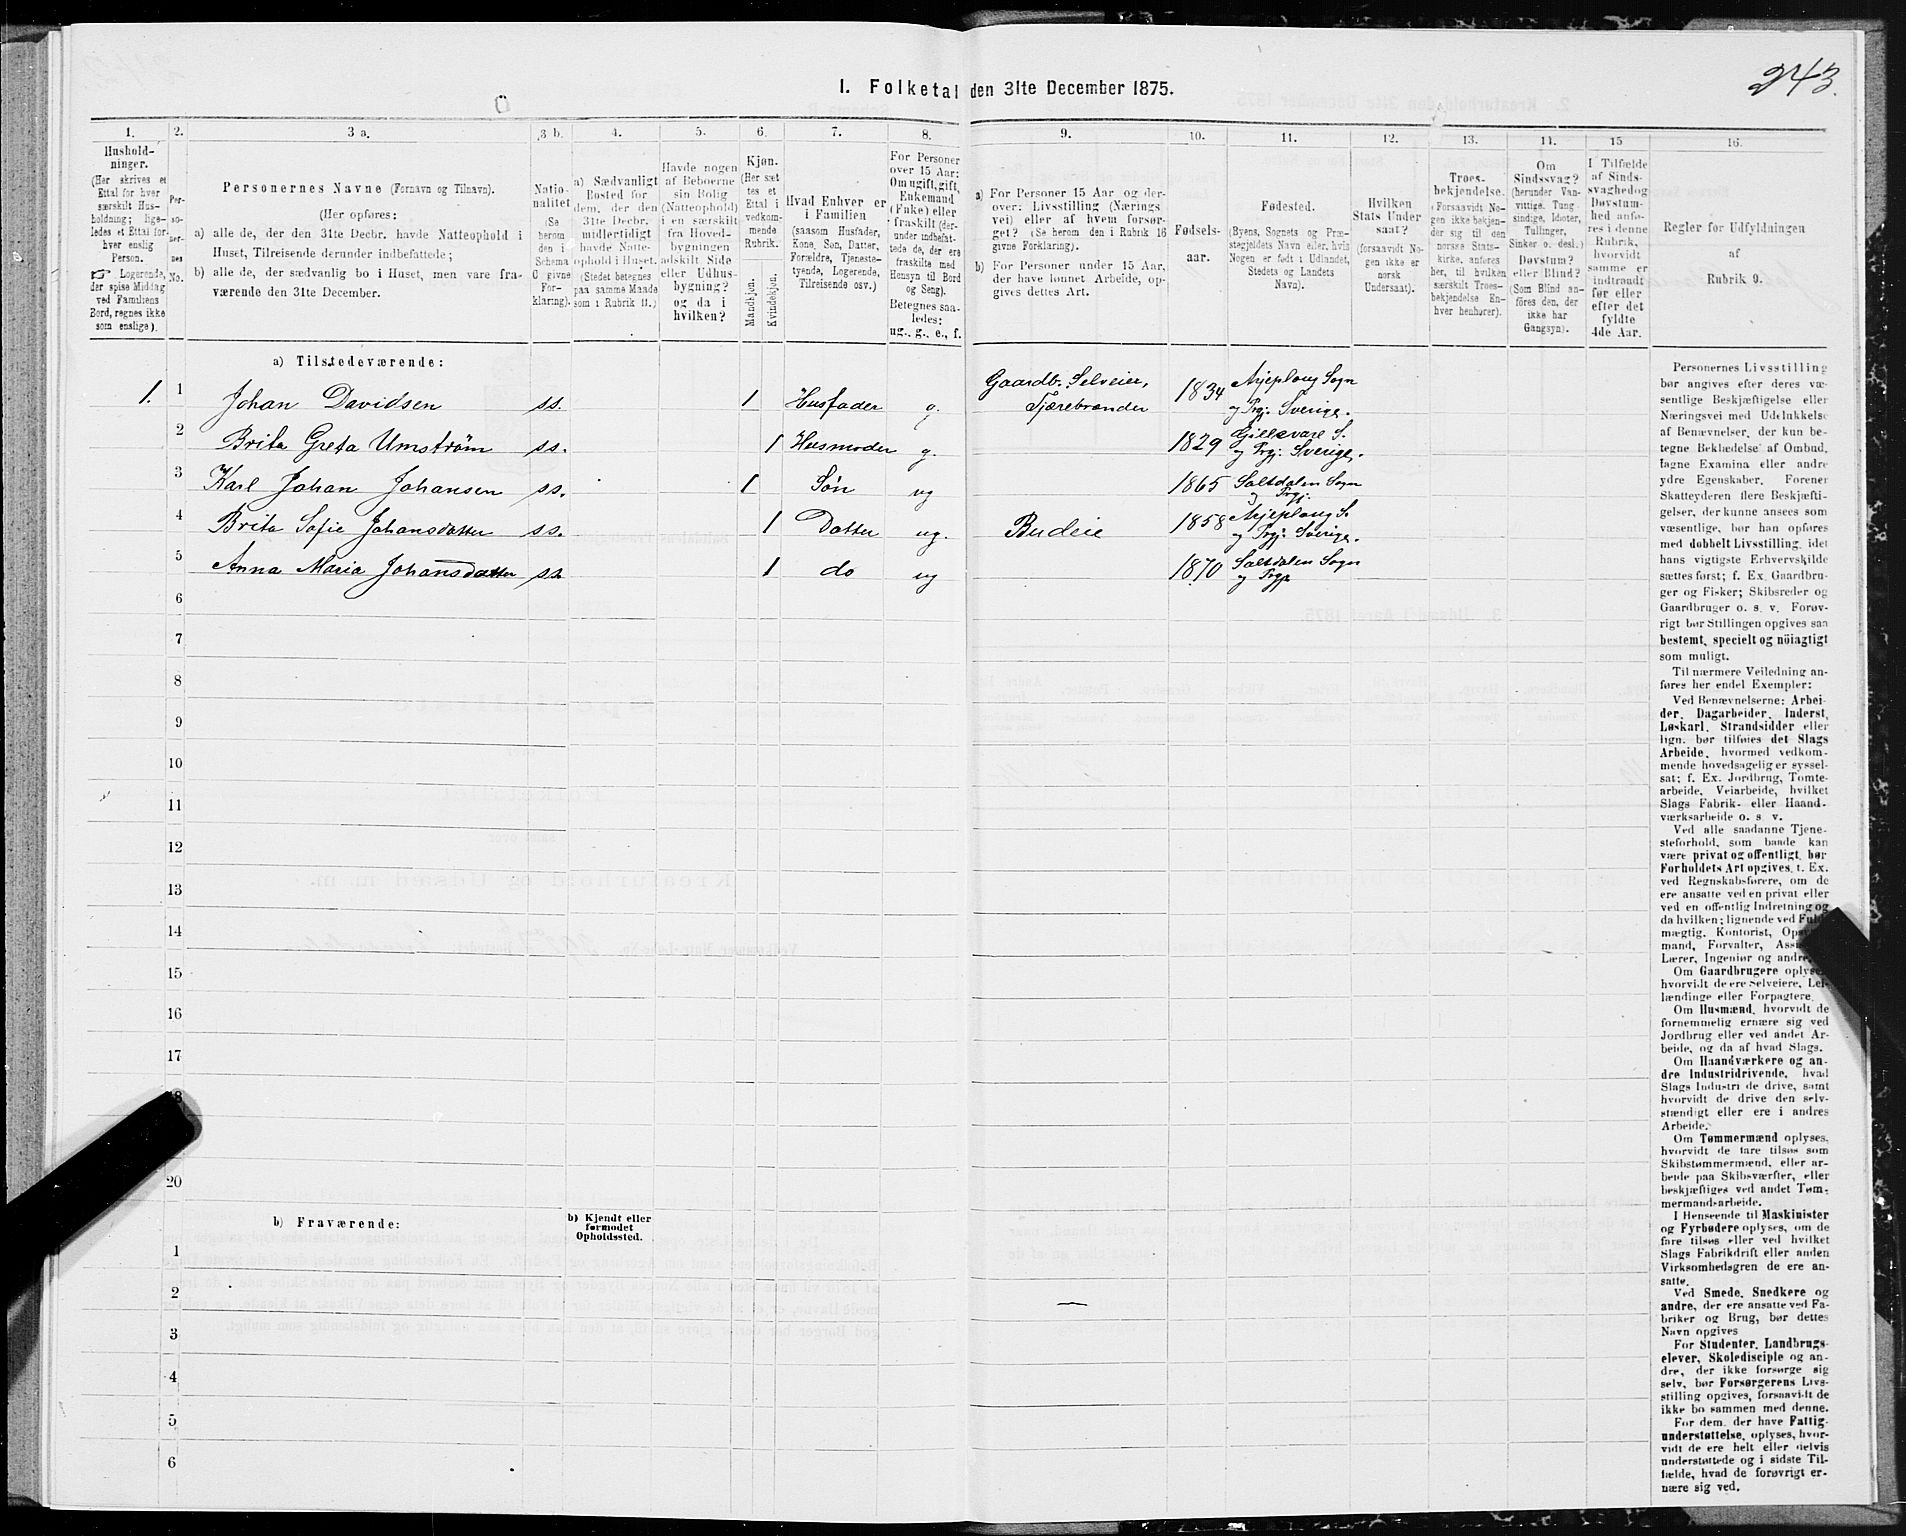 243.
1. Folketal den 31te December 1875.
1. 2. 3 a. 3 b. 4. 5. 6. 7. 8. 9. 10. 11. 12. 13. 14. 15 16.
Hushold-
ninger.
(Her skrives et
Ettal for hver
særskilt Hus-
holdning; lige-
ledes et Ettal for
hver enslig
Person.
☞ Logerende,
der spise Middag
ved Familiens
Bord, regnes ikke
som enslige).
Per-
so-
ner-
nes
No.
Personernes Navne (Fornavn og Tilnavn).
(Her opføres:
a) alle de, der den 31te Decbr. havde Natteophold i
Huset, Tilreisende derunder indbefattede;
b) alle de, der sædvanlig bo i Huset, men vare fra-
værende den 31te December.
Natio-
nalitet
(Se
herom
den i
Schema
C givne
For-
klaring).
a) Sædvanligt
Bosted for
dem, der den
31te Decbr.
midlertidigt
havde Natte-
ophold i Huset.
(Stedet betegnes
paa samme Maade
som i Rubrik 11.)
Havde nogen
af Beboerne
sin Bolig
(Natteophold)
i en særskilt
fra Hoved-
bygningen
adskilt Side
eller Udhus-
bygning?
og da i
hvilken?
Kjøn.
(Her sæt
tes et
Ettal i
vedkom-
mende
Rubrik.
Mandkjøn.
Kvindekjøn.
Hvad Enhver er
i Familien
(saasom Husfader,
Kone, Søn, Datter,
Forældre, Tjeneste-
tyende, Logerende,
Tilreisende osv.)
For Personer
over 15 Aar:
Om ugift, gift,
Enkemand
(Enke) eller
fraskilt (der-
under indbefat-
tede de, der ere
fraskilte med
Hensyn til Bord
og Seng).
Betegnes saa-
ledes:
ug., g., e., f.
a) For Personer 15 Aar og der-
over: Livsstilling (Nærings
vei) eller af hvem forsør-
get? (Se herom den i Rubrik 16
givne Forklaring).
b) For Personer under 15 Aar,
der have lønnet Arbeide, op-
gives dettes Art.
Fødsels-
aar.
Fødested.
(Byens, Sognets og Præ-
stegjeldets Navn eller, hvis
Nogen er født i Udlandet,
Stedets og Landets
Navn).
Hvilken
Stats Under
saat?
(forsaavidt No-
gen ikke er
norsk
Undersaat).
Troes-
bekjendelse.
(Forsaavidt No-
gen ikke bekjen-
der sig til den
norske Stats-
kirke, anføres
her, til hvilken
særskilt Troes-
bekjendelse En-
hver henhører).
Om
Sindssvag?
(herunder Van-
vittige, Tung
sindige, Idioter,
Tullinger,
Sinker o. desl.)
Døvstum?
eller Blind?
(Som Blind an-
føres den, der
ikke har
Gangsyn).
I Tilfælde
af Sinds-
svaghed og
Døvstum-
hed anfø-
res i denne
Rubrik,
hvorvidt
samme er
indtraadt
før eller
efter det
fyldte
4de Aar.
Regler for Udfyldningen
af
Rubrik 9.
a) Tilstedeværende:
1. 1 Johan Davidsen s.s. 1 Husfader g. Gaardb. Selveier, Tjærebrænder 1834 Arjeploug Sogn og Prgj. Sverige.
2 Brita Greta Umström s.s. 1 Husmoder g. 1829 Gillevare S. og Prgj. Sverige.
3 Karl Johan Johansen s.s. 1 Søn ug 1865 Saltdalen Sogn og Prgj.
4 Brita Sofie Johansdatter s.s. 1 Datter ug. Budeie 1858 Arjeploug S. og Prgj. Sverige.
5 Anna Maria Johansdatter s.s. 1 do ug 1870 Saltdalen Sogn og Prgj.
6
7
8
9
10
11
12
13
14
15
16
17
8
20
b) Fraværende:
b) Kjendt eller
formodet
Opholdssted.
1
2
3
4
5
6
Personernes Livsstilling
bør angives efter deres væ-
sentlige Beskjæftigelse eller
Næringsvei med Udelukkelse
af Benævnelser, der kun be-
tegne Beklædelse af Ombud,
tagne Examina eller andre
ydre Egenskaber. Forener
Skatteyderen flere Beskjæfti-
gelser, der kunne ansees som
væsentlige, bør han opføres
med dobbelt Livsstilling, idet
hans vigtigste Erhvervskilde
sættes først; f. Ex. Gaardbru-
ger og Fisker; Skibsreder og
Gaardbruger o. s. v. Forøv-
rigt bør Stillingen opgives saa
bestemt, specielt og nöiagtigt
som muligt.
Til nærmere Veiledning an-
føres her endel Exempler:
Ved Benævnelserne: Arbei-
der, Dagarbeider, Inderst,
Løskarl, Strandsidder eller
lign. bør tilføies det Slags
Arbeide, hvormed vedkom-
mende hovedsagelig er syssel-
sat; f. Ex. Jordbrug, Tomte-
arbeide, Veiarbeide, hvilket
Slags Fabrik- eller Haand-
værksarbeide o. s. v.
Ved alle saadanne Tjene-
steforhold, som baade kan
være privat og offentligt, bør
Forholdets Art opgives, t. Ex.
ved Regnskabsførere, om de
ere ansatte ved en privat eller
ved en offentlig Indretning og
da hvilken; lignende ved Fuld
mægtig, Kontorist,
mand, Forvalter,
Lærer, Ingeniør og andre.
Om Gaardbrugere oplyses
hvorvidt de ere Selveiere, Lei-
lændinge eller Forpagtere.
Om Husmænd, hvorvidt de
fornemmelig ernære sig ved
Jordbrug eller ved andet Ar-
beide, og da af hvad Slags.
Om Haandværkere og an-
dre Industridrivende, hvad
Slags Industri de drive, samt
hvorvidt de drive den selv-
stændigt eller ere i andres
Arbeide.
Om Tømmermænd oplyses,
hvorvidt de fare tilsøs som
Skibstømmermænd, eller ar-
beide paa Skibsværfter, eller
beskjæftiges ved andet Tøm-
mermandsarbeide.
I Henseende til Maskinister
og Fyrbødere oplyses, om de
fare tilsøs eller ved hvilket
Slags Fabrikdrift eller anden
Virksomhedsgren de ere an-
satte.
Ved Smede, Snedkere og
andre, der ere ansatte ved Fa-
briker og Brug, bør dettes
Navn opgives
For Studenter, Landbrugs-
elever, Skoledisciple og an-
dre, der ikke forsørge sig
selv, bør Forsørgerens Livs-
stilling opgives, forsaavidt de
ikke bo sammen med denne.
For dem, der have Fattig-
understøttelse, oplyses, hvor-
vidt de ere helt eller delvis
understøttede og i sidste Til-
fælde, hvad de forøvrigt er-
nære sig ved.